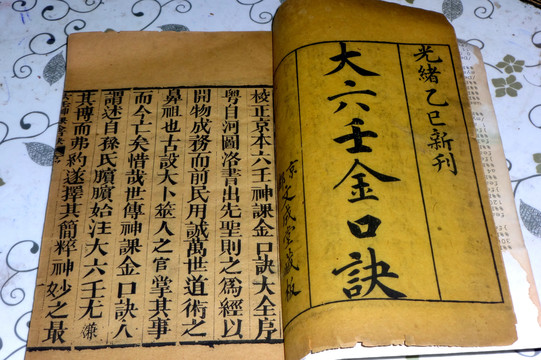 光緒乙巳新刊
大六壬金口訣
京文成堂藏板
校正京本六壬神課金口訣大全序
粤自河圖洛書出先聖則之爲經以
開物成務而前民用誠萬世道術之
鼻祖也古設大卜筮人之官堂其事
而今亡矣惜哉世傳神課金口訣八
謂述自孫氏臏臏始注大六壬无嫌
其博而弗約遂擇其簡粹神妙之最